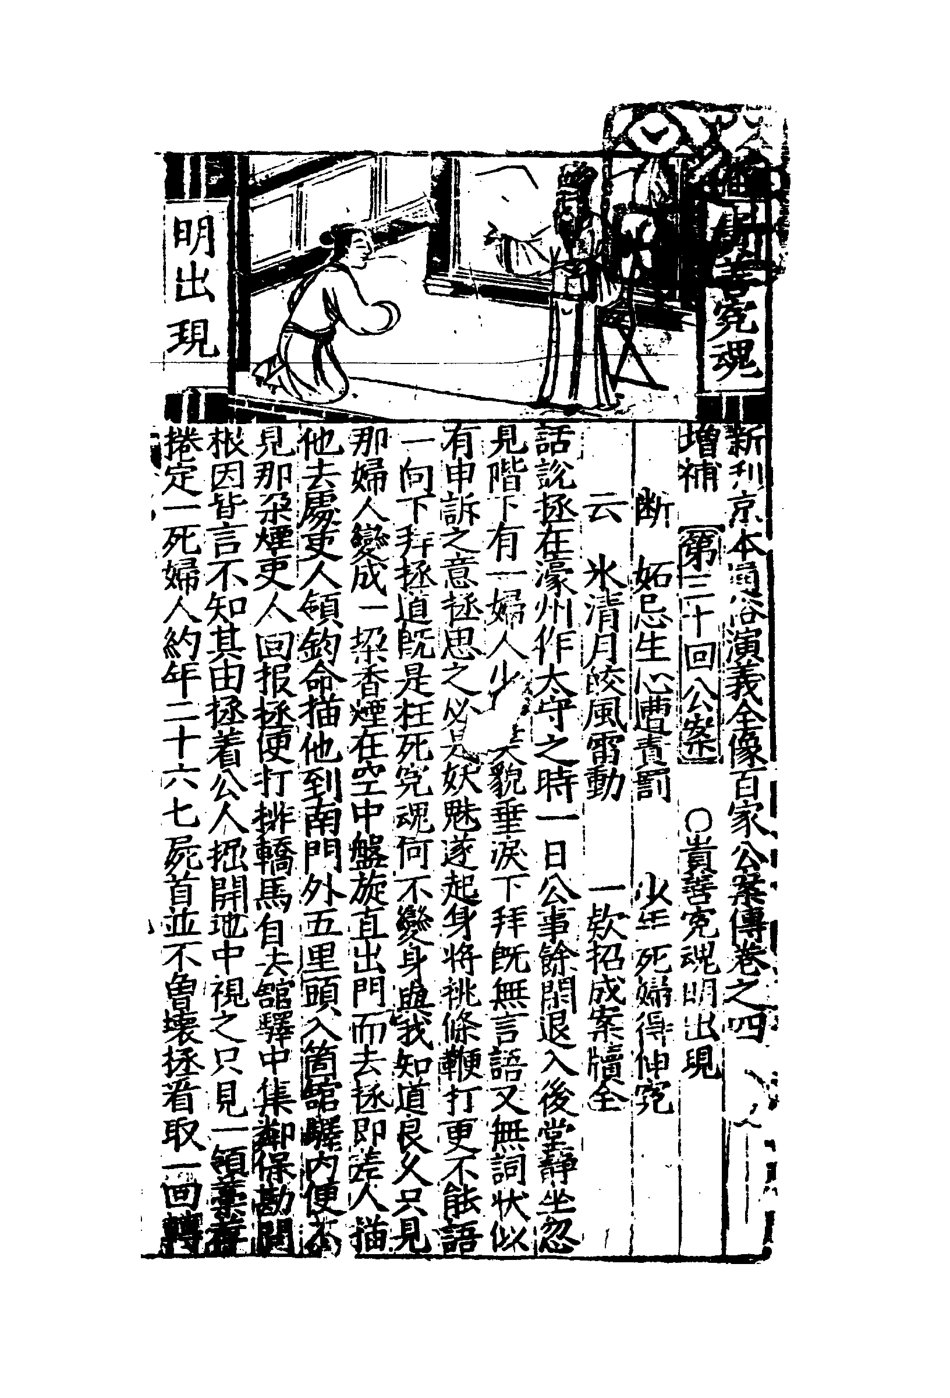 責善冤魂
明出現
新刊京本通俗演義全像百家公案傳卷之四
增補
第三十回公案 ○責善冤魂明出現
断 妬忌生心遭責罰 少年死婦得伸冤
云 氷清月皎風雷動 一欵招成案牘全
話說拯在濠州作太守之時一日公事餘閑退入後堂静坐忽
見階下有一婦人少 美貌垂淚下拜既無言語又無詞状似
有申訴之意拯思之必是妖魅遂起身将桃條鞭打更不能語
一向下拜拯道既是枉死冤魂何不變身與我知道良久只見
那婦人變成一朶香煙在空中盤旋直出門而去拯即差人描
他去處吏人領鈞命描他到南門外五里頭入箇舘驛内便不
見那朶煙吏人回报拯便打拚轎馬自去舘驛中集鄰保勘問
根因皆言不知其由拯着公人掘開地中視之只見一領藁荐
捲定一死婦人約年二十六七屍首並不曾壊拯看取一回轉